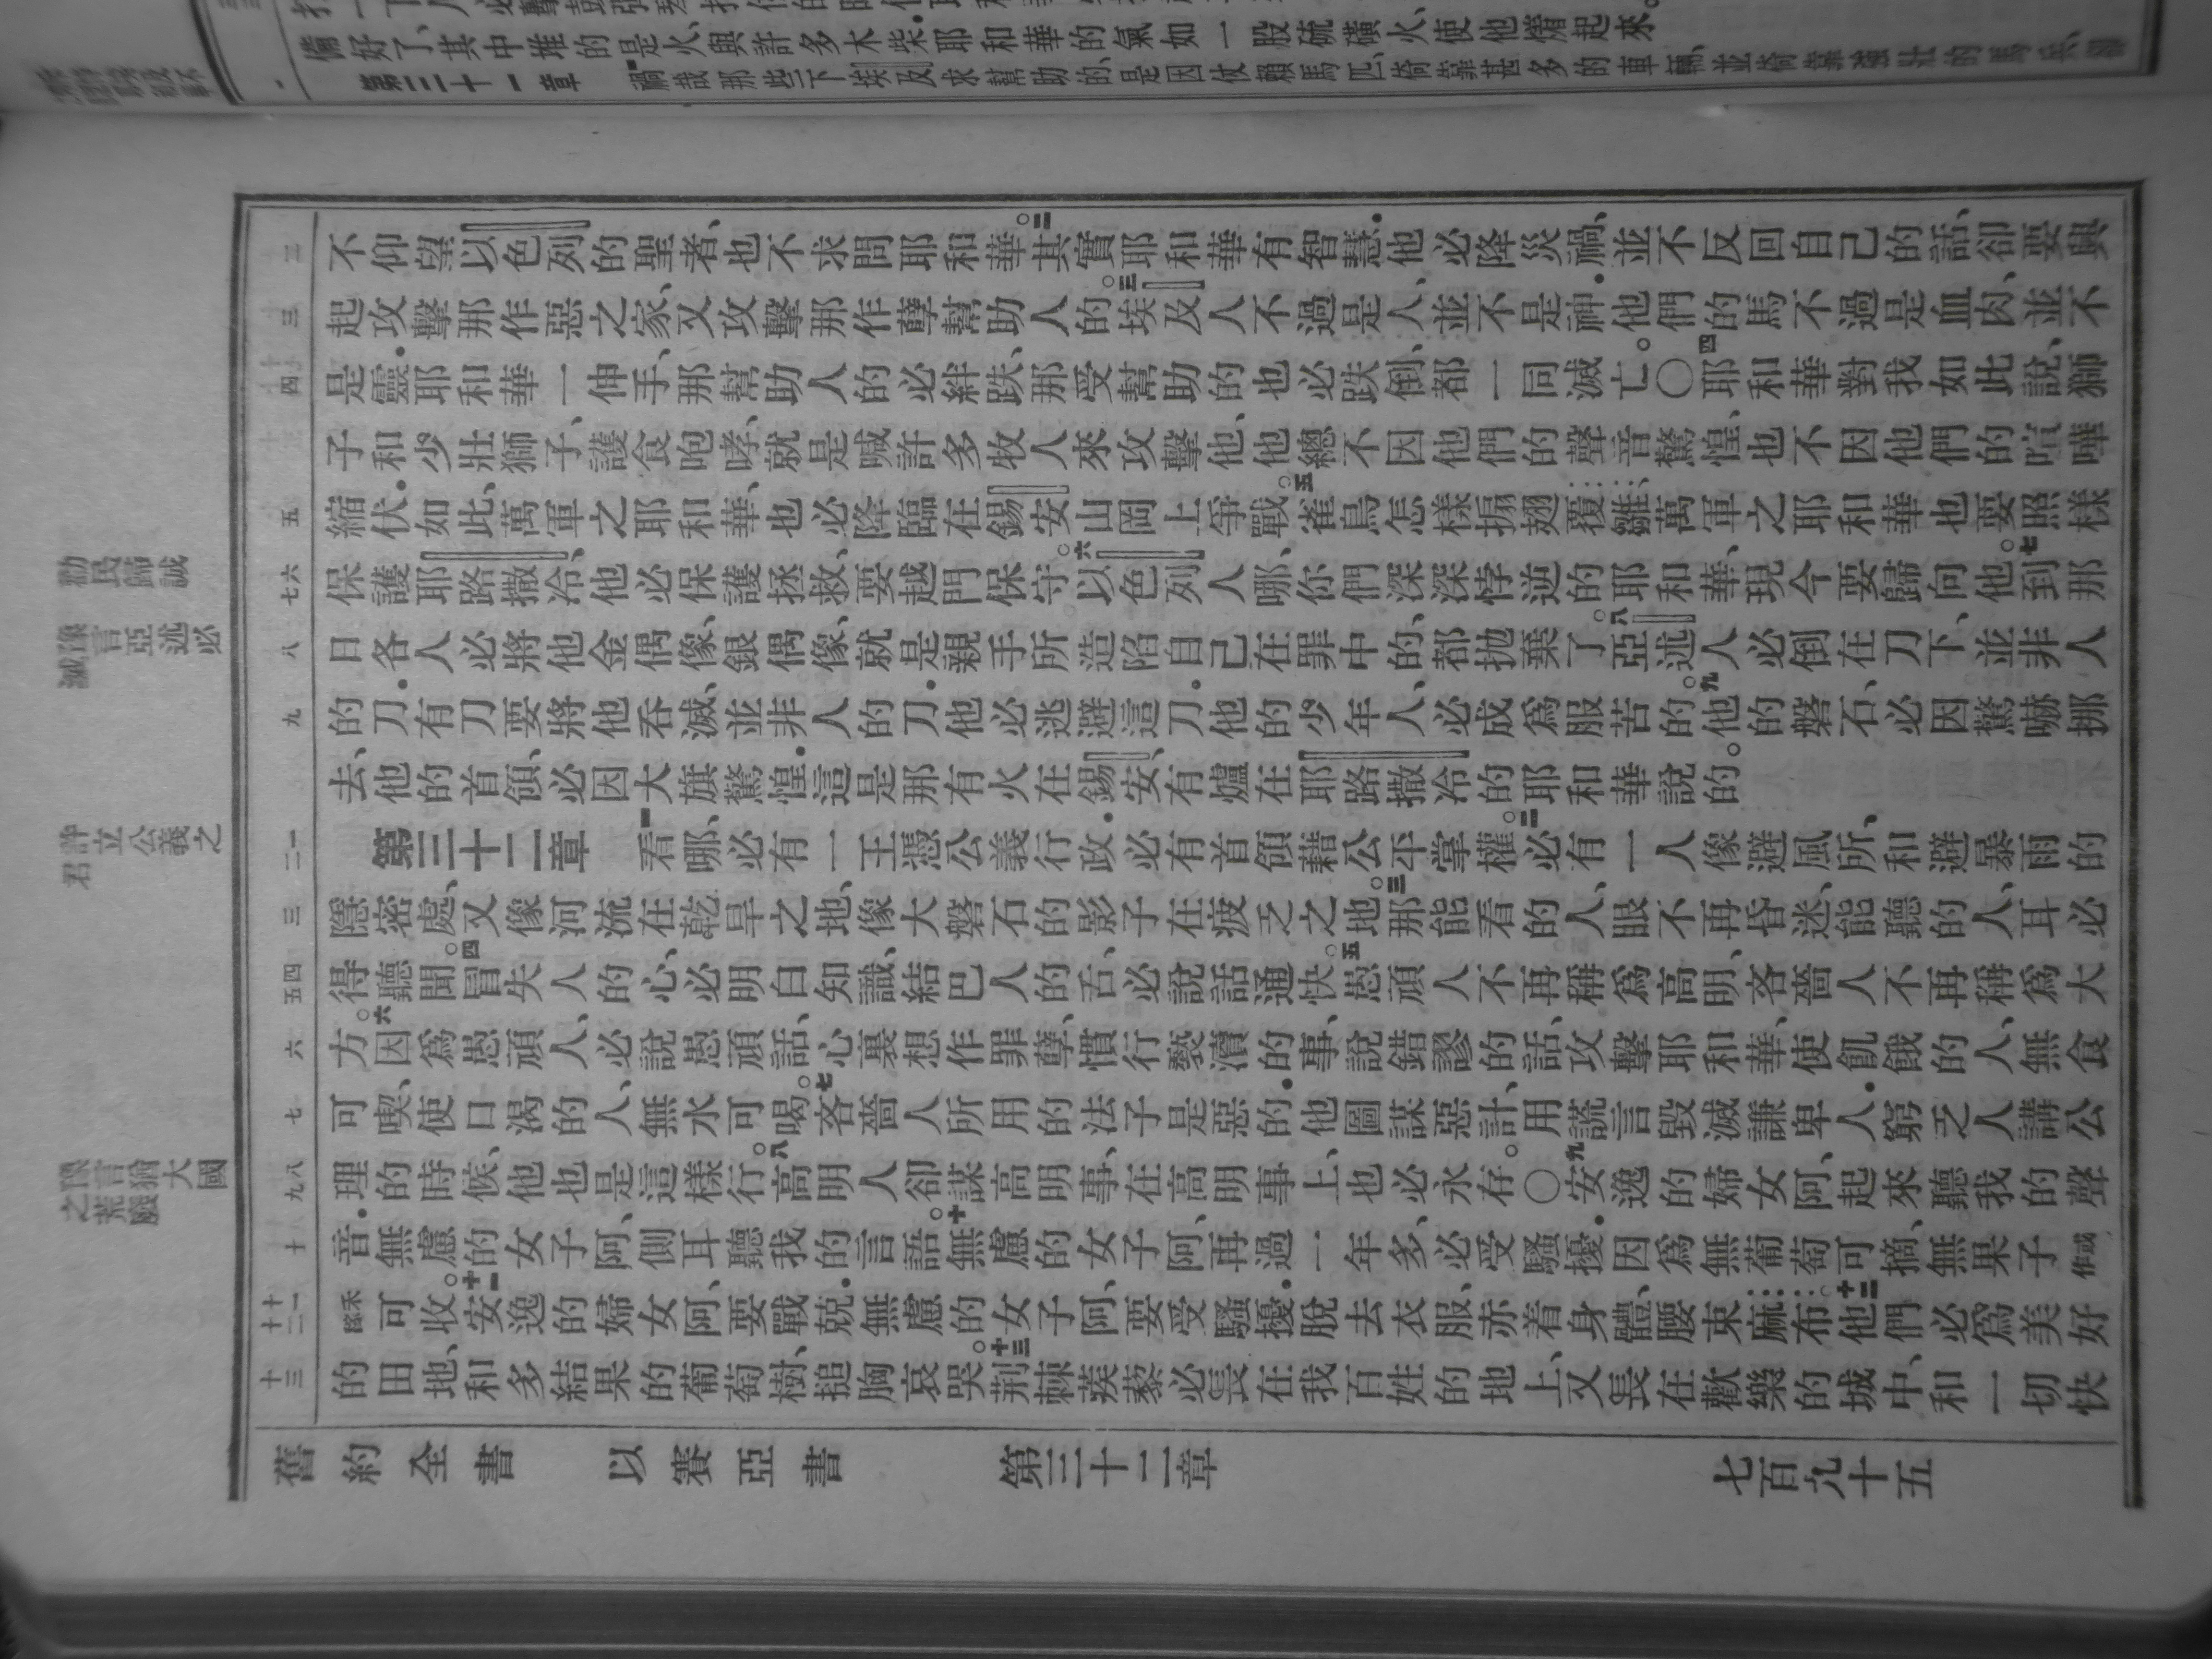 備好了、其中堆的是火與許多木柴耶和華的氣如一股硫磺火、使他燒起來。
第三十一章 禍哉那些下埃及求幫助的、是因仗賴馬匹、倚靠甚多的車輛、並倚靠強壯的馬兵、
二
不仰望以色列的聖者、也不求問耶和華。二其實耶和華有智慧.他必降災禍、並不反回自己的話、卻要興
三
起攻擊那作惡之家、又攻擊那作孽幫助人的。三埃及人不過是人、並不是神.他們的馬不過是血肉、並不
四
是靈.耶和華一伸手、那幫助人的必絆跌、那受幫助的也必跌倒、都一同滅亡。〇四耶和華對我如此說、獅
子和少壯獅子、護食咆哮、就是喊許多牧人來攻擊他、他總不因他們的聲音驚惶、也不因他們的喧嘩
五
縮伏.如此、萬軍之耶和華、也必降臨在錫安山岡上爭戰。五雀鳥怎樣搧翅覆雛、萬軍之耶和華也要照樣
六七
保護耶路撒冷、他必保護拯救、要越門保守。六以色列人哪、你們深深悖逆的耶和華、現今要歸向他。七到那
八
日各人必將他金偶像、銀偶像、就是親手所造陷自己在罪中的、都拋棄了。八亞述人必倒在刀下、並非人
九
的刀.有刀要將他吞滅、並非人的刀.他必逃避這刀.他的少年人、必成爲服苦的。九他的磐石、必因驚嚇挪
去、他的首領、必因大旗驚惶.這是那有火在錫安、有爐在耶路撒冷的耶和華說的。
一二
第三十二章 一看哪、必有一王憑公義行政.必有首領藉公平掌權。二必有一人像避風所、和避暴雨的
三
隱密處、又像河流在乾旱之地、像大磐石的影子在疲乏之地。三那能看的人、眼不再昏迷、能聽的人、耳必
四五
得聽聞。四冒失人的心、必明白知識、結巴人的舌、必說話通快。五愚頑人不再稱爲高明、吝嗇人不再稱爲大
六
方。六因爲愚頑人、必說愚頑話、心裏想作罪孽、慣行褻瀆的事、說錯謬的話、攻擊耶和華、使飢餓的人、無食
七
可喫、使口渴的人、無水可喝。七吝嗇人所用的法子是惡的.他圖謀惡計、用謊言毀滅謙卑人.窮乏人講公
八九
理的時候、他也是這樣行。八高明人卻謀高明事、在高明事上、也必永存。〇九安逸的婦女阿、起來聽我的聲
十
音.無慮的女子阿、側耳聽我的言語。十無慮的女子阿、再過一年多、必受騷擾.因爲無葡萄可摘、無果子或作
十一十二
禾稼可收。十一安逸的婦女阿、要戰兢.無慮的女子阿、要受騷擾.脫去衣服、赤着身體、腰束麻布。十二他們必爲美好
十三
的田地、和多結果的葡萄樹、搥胸哀哭。十三荊棘蒺藜必長在我百姓的地上、又長在歡樂的城中、和一切快
勸民歸誠
豫言亞述必
滅
許立公義之
君
豫言猶大國
之荒廢
舊約全書 以賽亞書 第三十二章 七百九十五